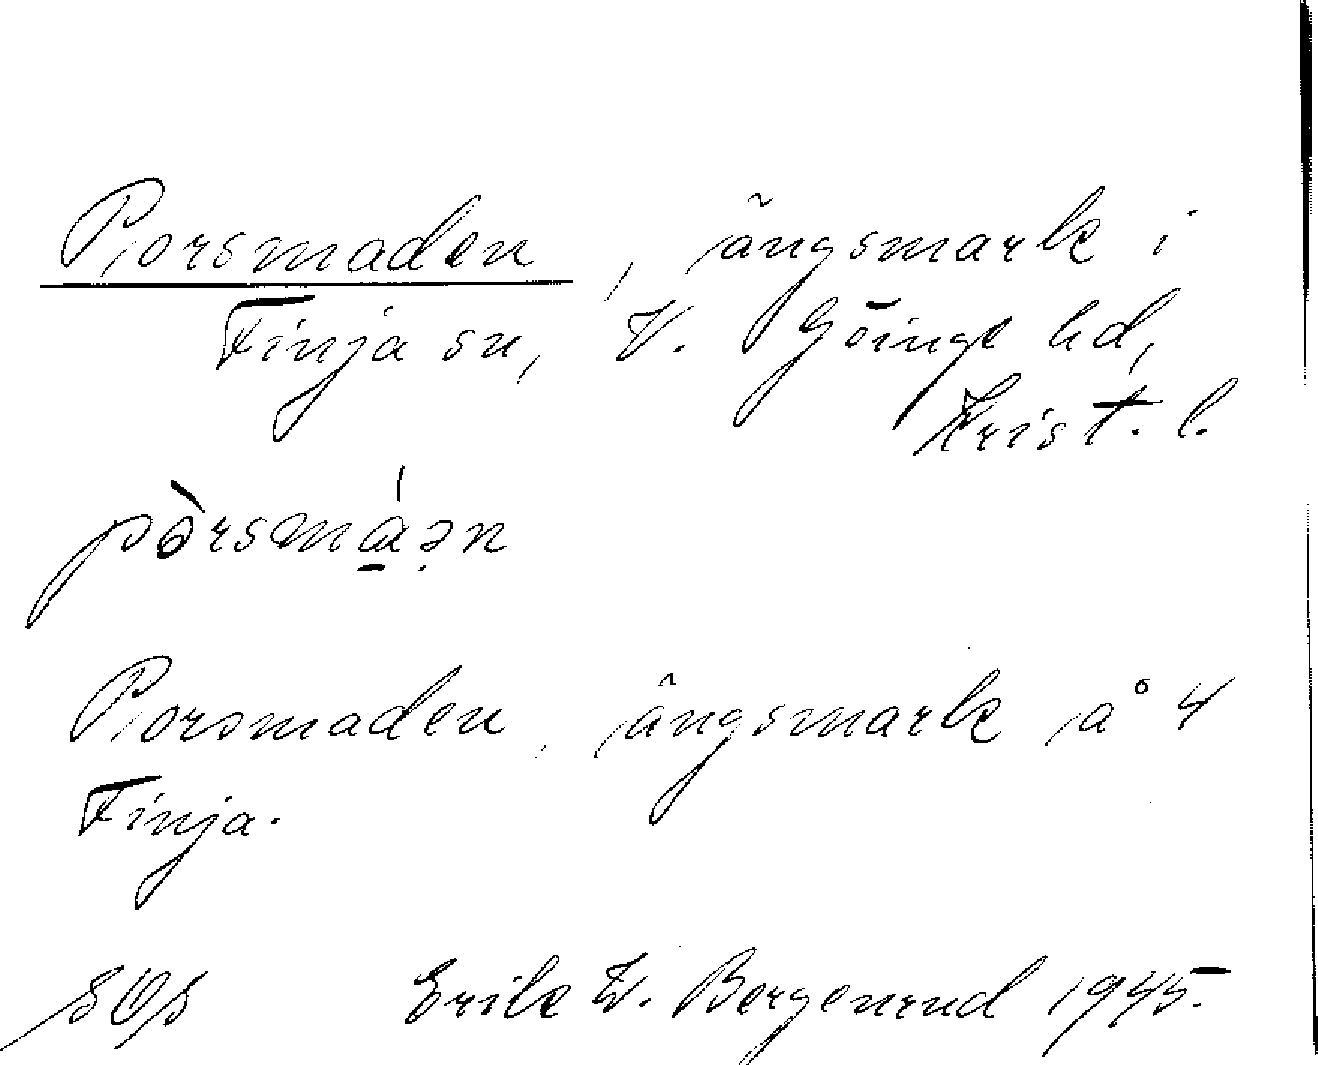 Porsmaden, ängsmark i
Finja sn, V. Göinge hd,
Krist. l.
pòrsmáən
Porsmaden, ängsmark å 4
Finja.
SOS Erik W. Bergenrud 1945.